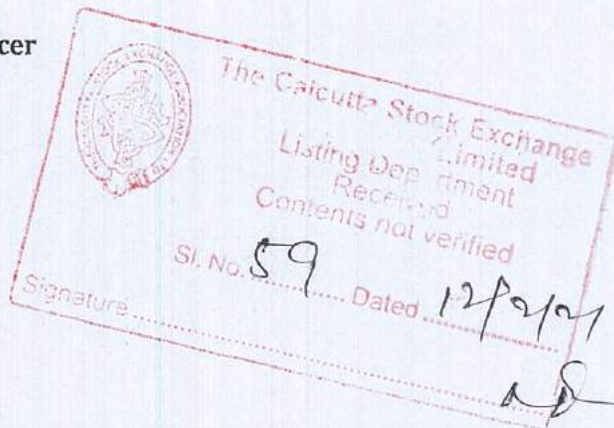 cer
The Calcutta Stock Exchange
Limited
Listing Department
Received
Contents not verified
Sl. No. 59 Dated 12/2/21
Signature